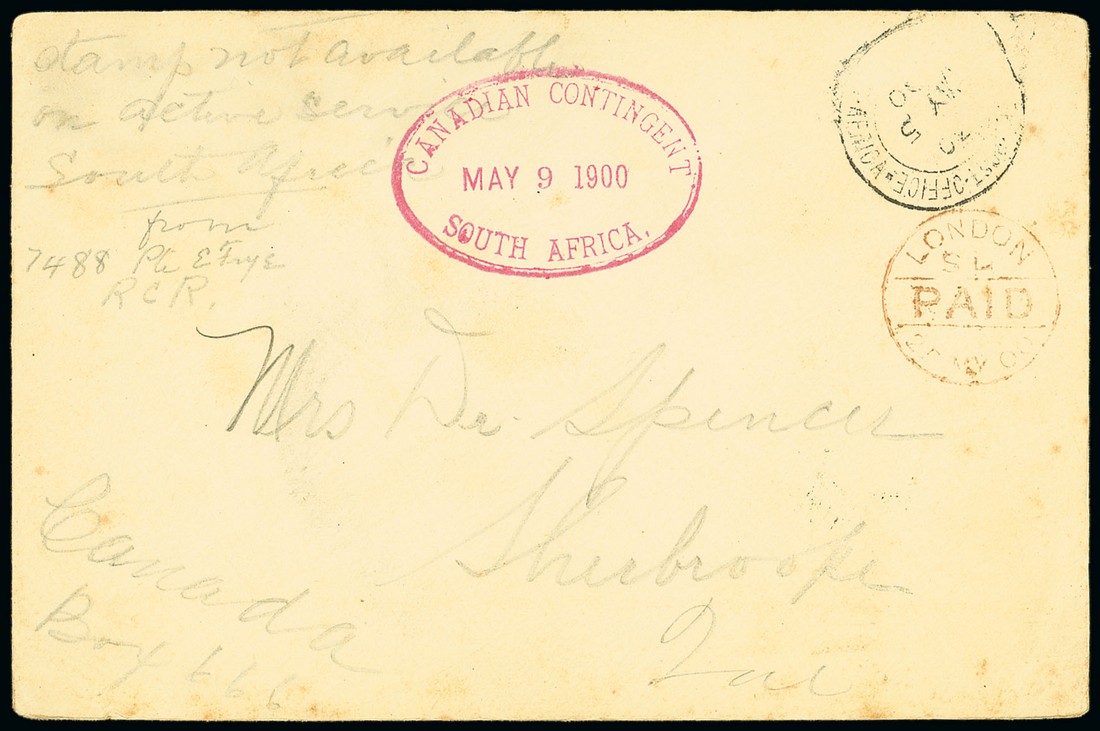 stamp not available
on active service
South Africa
from
7488 Pte E Frye
R C R.
CANADIAN CONTINGENT
MAY 9 1900
SOUTH AFRICA.
POST-OFFICE
AFRICA
MY
5
00
LONDON
PAID
MY 00
Mrs Dr. Spencer
Sherbrooke
Que
Canada
Box 666